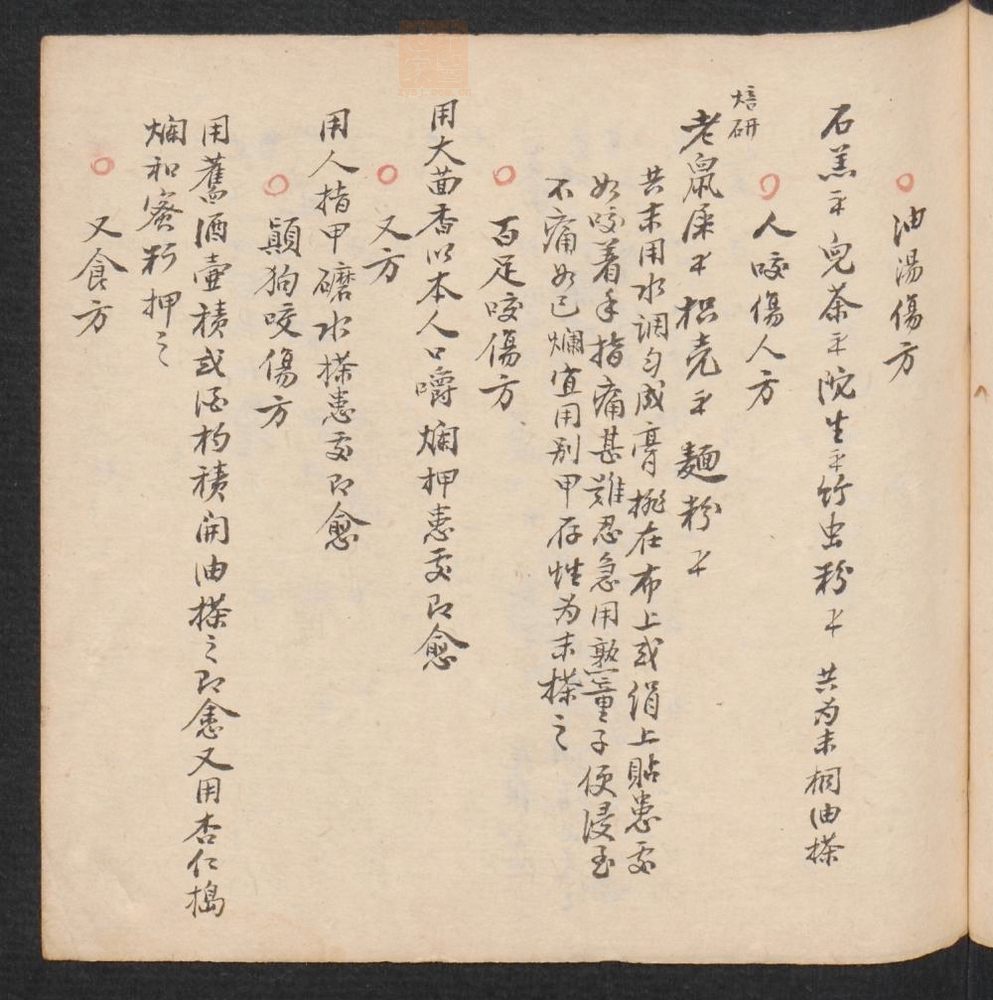 油湯傷方
石羔 兒茶 陀生 竹虫粉 共为末桐油搽
人咬傷人方
焙研
老鼠屎 枳壳 麵粉
共末用水调匀成膏挑在布上或绢上貼患處
如咬着手指痛甚难忍急用熟童子便浸至
不痛如已爛宜用别甲存性为末搽之
百足咬傷方
用大茴香以本人口嚼爛押患處即愈
又方
用人指甲磨水搽患處即愈
顛狗咬傷方
用舊酒壷積或酒杓積開油搽之即愈又用杏仁搗
爛和蜜押之
又食方